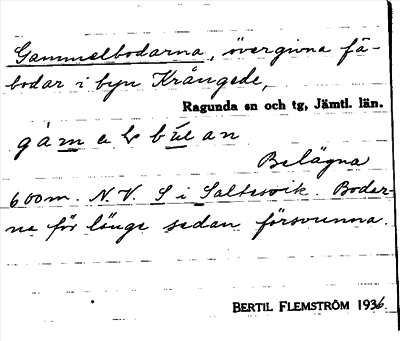 Gammelbodarna, övergivna fä-
bodar i byn Krångede,
Ragunda sn och tg, Jämtl. län.
Belägna
600 m. N.V. S i Saltesvik. Bodar-
na för länge sedan försvunna.
BERTIL FLEMSTRÖM 1936.